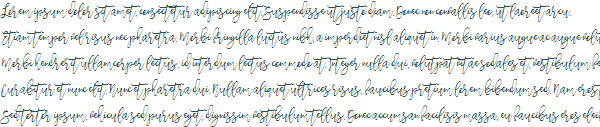 Lorem ipsum dolor sit amet, consectetur adipiscing elit. Suspendisse ut justo diam. Donec non convallis leo, ut laoreet arcu.
Etiam tempor vel risus nec pharetra. Morbi fringilla luctus nibh, a imperdiet nisl aliquet in. Morbi varius augue ac augue
Morbi hendrerit ullamcorper lectus, id interdum lectus commodo at. Integer nulla dui, volutpat vitae sodales et, vestibulum
Curabitur et nunc elit. Nunc et pharetra dui. Nullam aliquet ultrices risus, faucibus pretium lorem bibendum sed. Nam
Sed tortor ipsum, vehicula sed purus eget, dignissim vestibulum tellus. Donec accumsan facilisis massa, eu faucibus eros